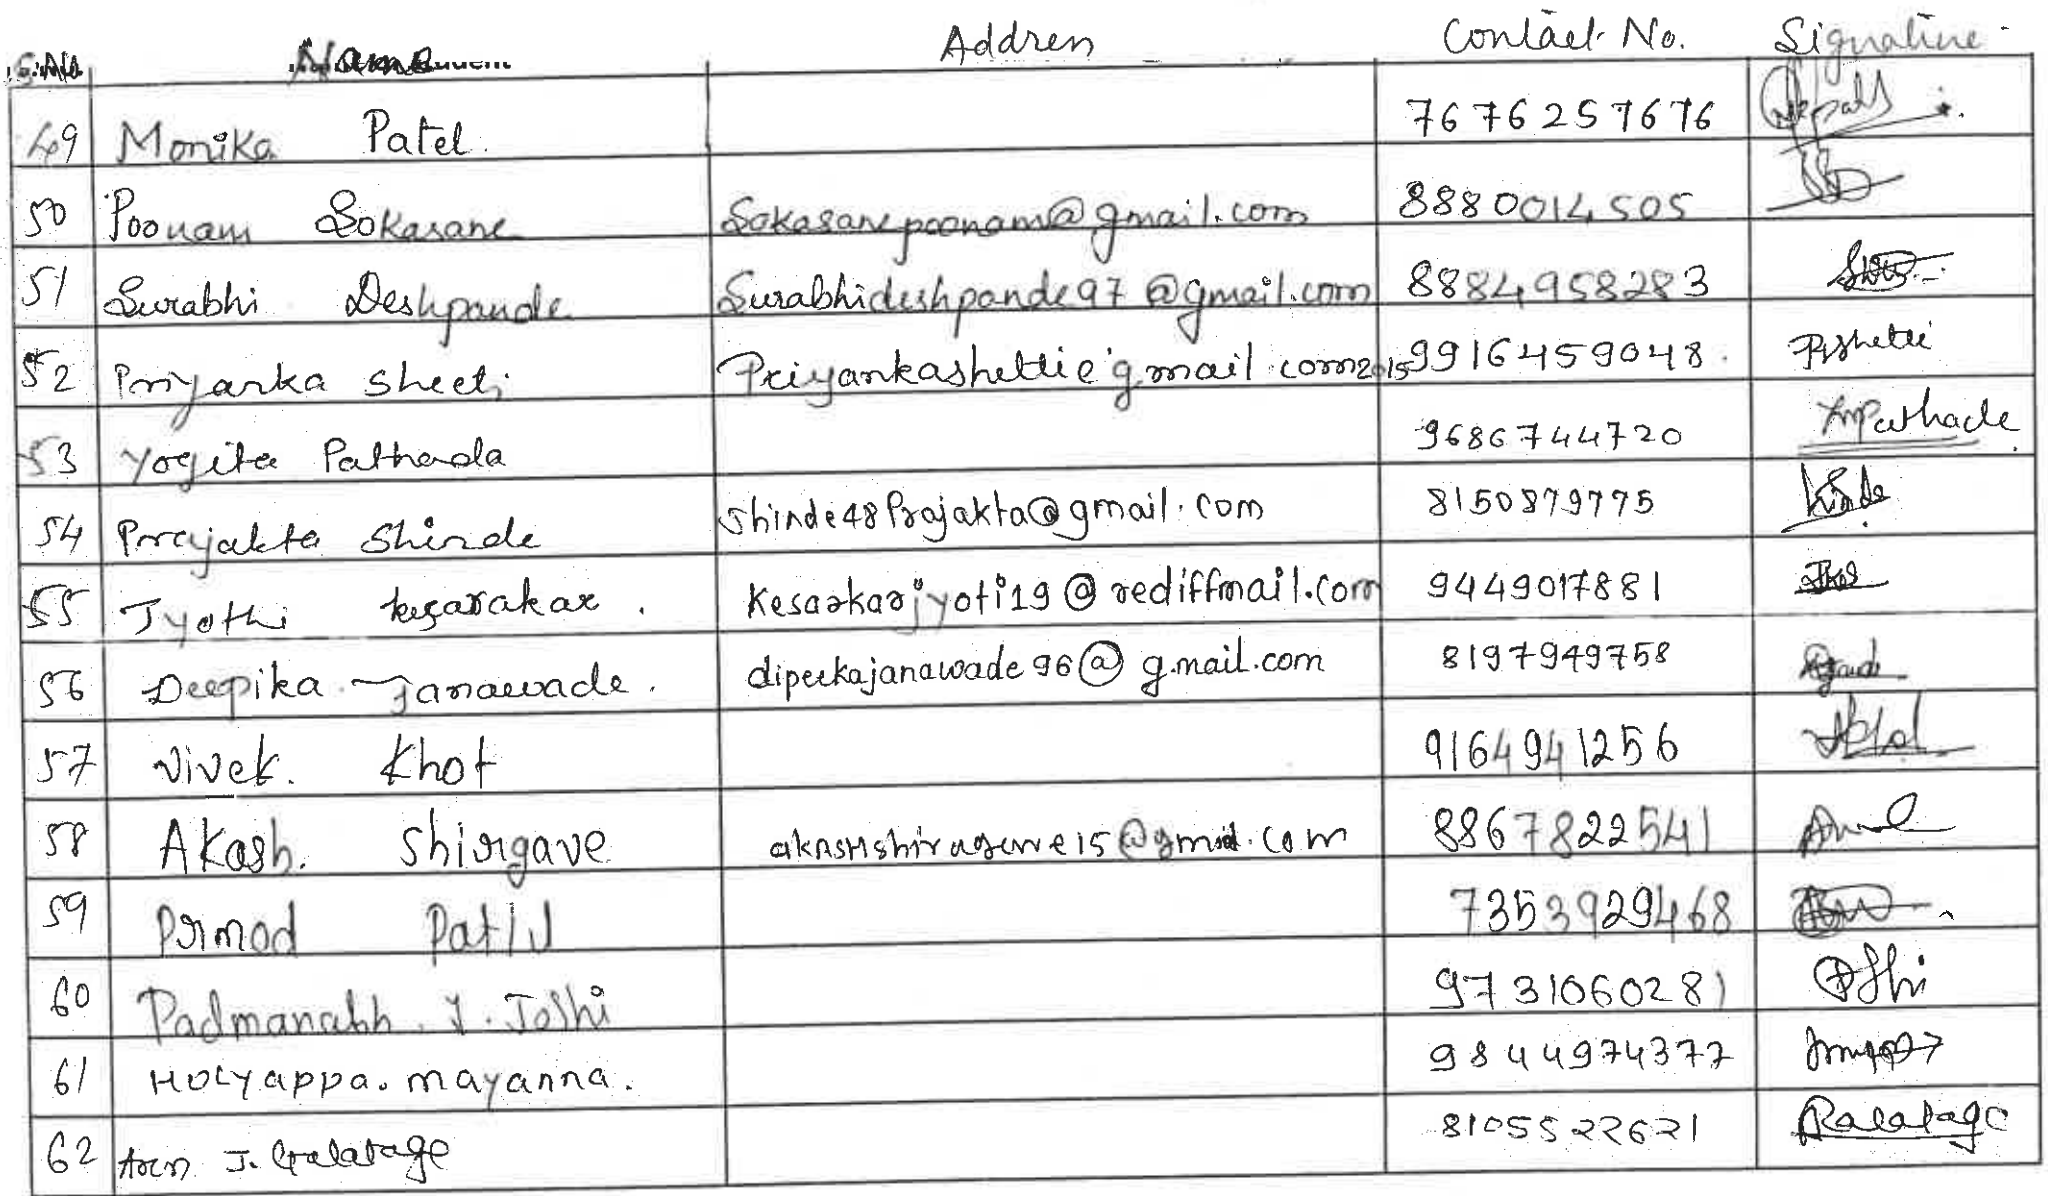 S.No Name Addren Contact No. Signature
49 Monika Patel. 7676257676
50 Poonam Sokasane Sokasanepoonam@gmail.com 8880014505
51 Surabhi Deshpande Surabhideshpande97@gmail.com 8884958283
52 Priyanka sheeti Priyankashettie gmail.com2015 9916459048. Pshetti
53 Yogita Pathada 9686744720 Pathade
54 Prajakta Shinde Shinde48Prajakta@gmail.com 8150879775
55 Jyothi kesarakar. Kesarkarjyoti19@rediffmail.com 9449017881
56 Deepika Janawade. dipeekajanawade96@g.mail.com 8197949758
57 Vivek. Khot 9164941256
58 Akash. Shirgave 8867822541
59 Prmod Patil 7353929468
60 Padmanabh. J. Joshi 9731060281
61 Holyappa. mayanna. 9844974377
62 J. Galatage 8105522621